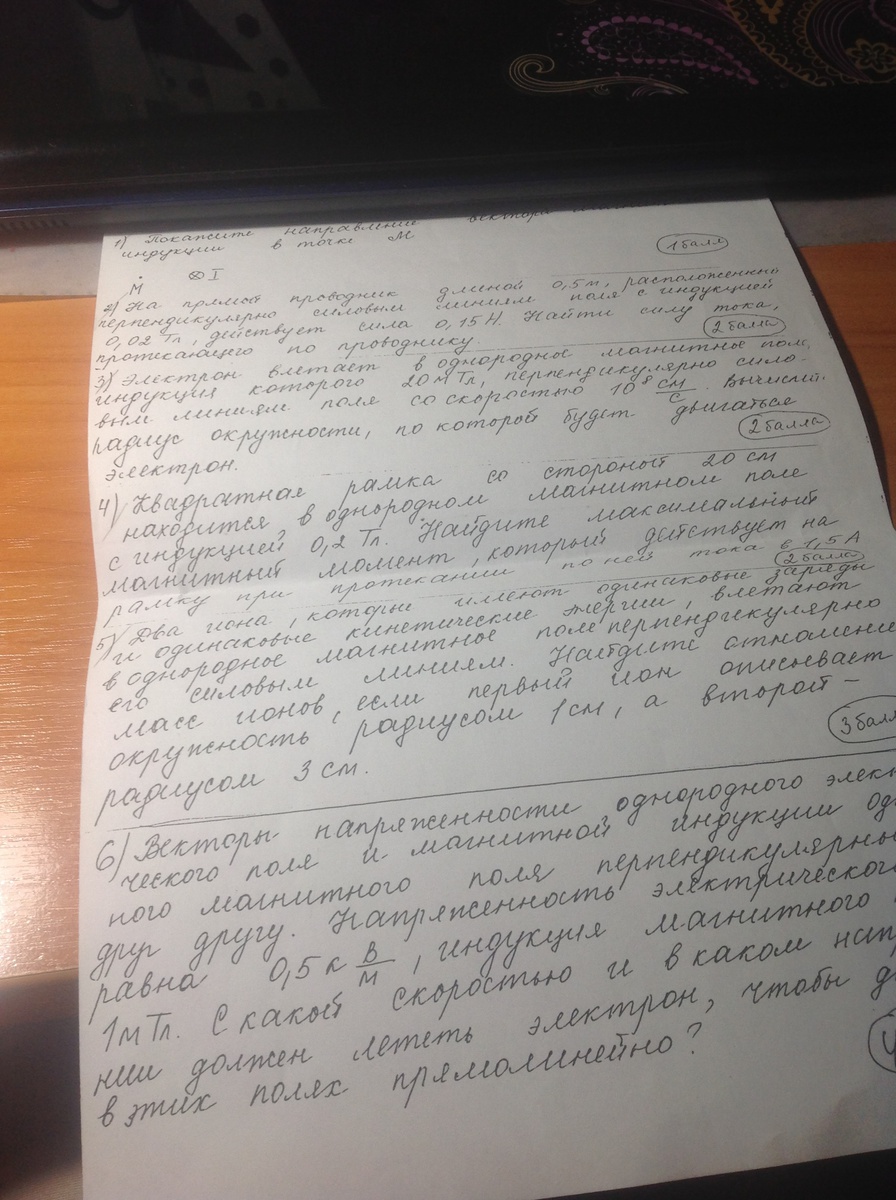 1) Покажите направление вектора
индукции в точке М
1 балл
М ⊗ I
2) На прямой проводник длиной 0,5 м, расположенный
перпендикулярно силовым линиям поля с индукцией
0,02 Тл, действует сила 0,15 Н. Найти силу тока,
протекающего по проводнику.
2 балла
3) Электрон влетает в однородное магнитное поле,
индукция которого 20 мТл, перпендикулярно сило-
вым линиям поля со скоростью 10⁸ см/с. Вычисли.
радиус окружности, по которой будет двигаться
электрон.
2 балла
4) Квадратная рамка со стороной 20 см
находится в однородном магнитном поле
с индукцией 0,2 Тл. Найдите максимальный
магнитный момент, который действует на
рамку при протекании по ней тока в 1,5 А
2 балла
5) Два иона, которые имеют одинаковые заряды
и одинаковые кинетические энергии, влетают
в однородное магнитное поле перпендикулярно
его силовым линиям. Найдите отношение
масс ионов, если первый ион описывает
окружность радиусом 1 см, а второй –
радиусом 3 см.
3 балл
6) Векторы напряженности однородного элект
ческого поля и магнитной индукции од
ного магнитного поля перпендикулярны
друг другу. Напряженность электрического
равна 0,5 к В/м, индукция магнитного
1 мТл. С какой скоростью и в каком нап
нии должен лететь электрон, чтобы дв
в этих полях прямолинейно?